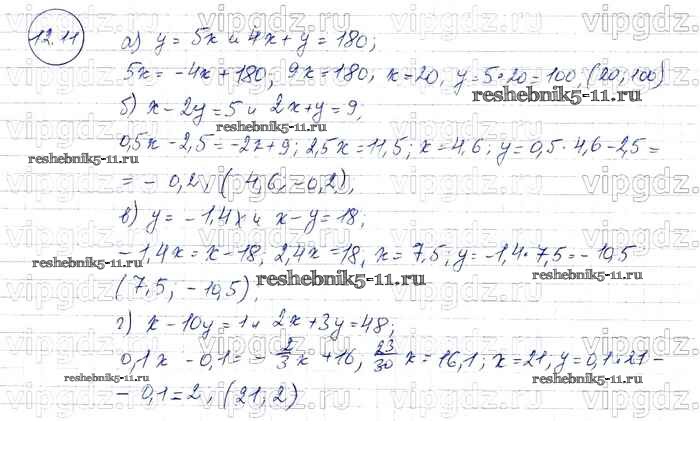 12.11
а) y = 5x и 4x + y = 180;
5x = -4x + 180; 9x = 180, x = 20, y = 5·20 = 100, (20; 100)
reshebnik5-11.ru
б) x - 2y = 5 и 2x + y = 9,
reshebnik5-11.ru
0,5x - 2,5 = -2x + 9; 2,5x = 11,5; x = 4,6; y = 0,5·4,6 - 2,5 =
reshebnik5-11.ru reshebnik5-11.ru
= - 0,2, (4,6, -0,2),
в) y = -1,4x и x - y = 18;
-1,4x = x - 18, 2,4x = 18, x = 7,5; y = -1,4·7,5 = -10,5
reshebnik5-11.ru reshebnik5-11.ru reshebnik5-11.ru
(7,5; -10,5),
г) x - 10y = 1 и 2x + 3y = 48;
reshebnik5-11.ru
0,1x - 0,1 = - 2/3 x + 16, 23/30 x = 16,1; x = 21, y = 0,1·21 -
reshebnik5-11.ru reshebnik5-11.ru
- 0,1 = 2, (21; 2)
vipgdz.ru